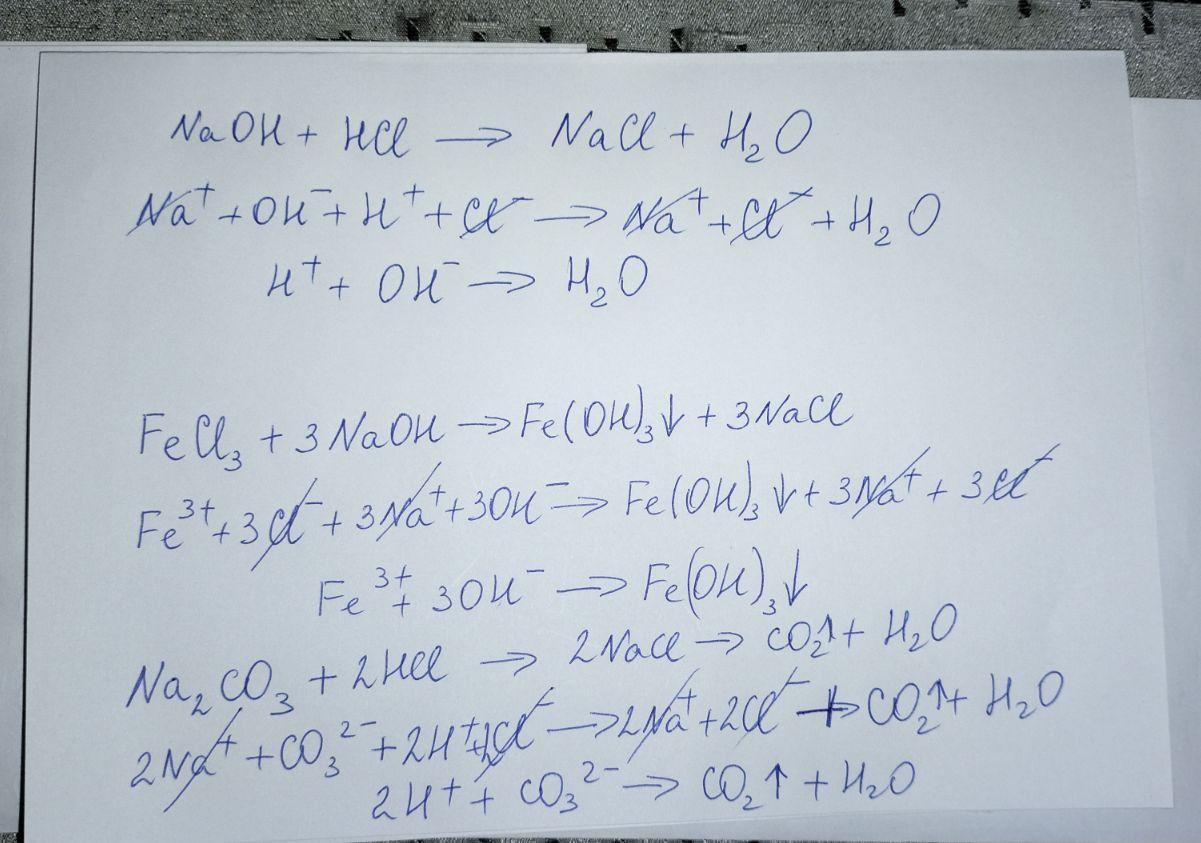 NaOH + HCl → NaCl + H₂O
Na⁺ + OH⁻ + H⁺ + Cl⁻ → Na⁺ + Cl⁻ + H₂O
H⁺ + OH⁻ → H₂O
FeCl₃ + 3NaOH → Fe(OH)₃↓ + 3NaCl
Fe³⁺ + 3Cl⁻ + 3Na⁺ + 3OH⁻ → Fe(OH)₃↓ + 3Na⁺ + 3Cl⁻
Fe³⁺ + 3OH⁻ → Fe(OH)₃↓
Na₂CO₃ + 2HCl → 2NaCl → CO₂↑ + H₂O
2Na⁺ + CO₃²⁻ + 2H⁺ + 2Cl⁻ → 2Na⁺ + 2Cl⁻ + CO₂↑ + H₂O
2H⁺ + CO₃²⁻ → CO₂↑ + H₂O